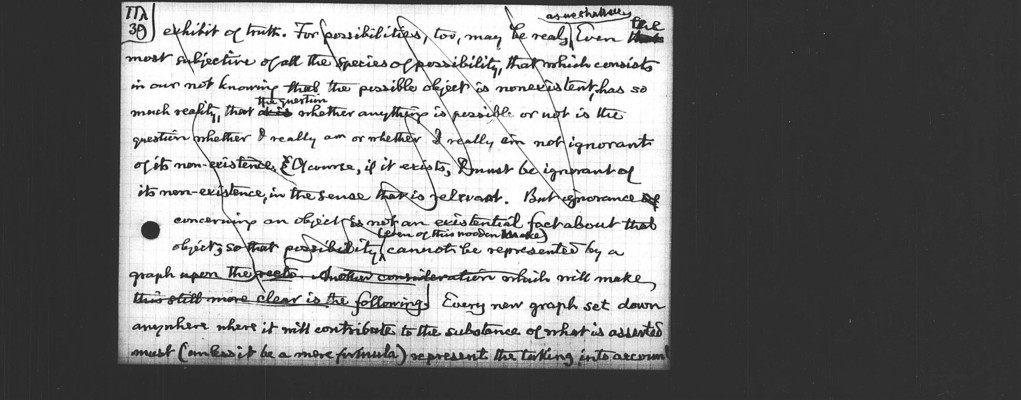 as we shall see
ΠΛ
39
exhibit of truth. For possibilities, too, may be real, Even the
most subjective of all the species of possibility, that which consists
in our not knowing that the possible object is nonexistent, has so
the question
much reality, that whether anything is possible or not is the
question whether I really am or whether I really am not ignorant
of its non-existence. Of course, if it exists, I must be ignorant of
its non-existence, in the sense that is relevant. But ignorance of
concerning an object is not an existential fact about that
(even of this wooden)
object; so that possibility cannot be represented by a
graph upon the recto. Another consideration which will make
this still more clear is the following. Every new graph set down
anywhere where it will contribute to the substance of what is asserted
must (unless it be a mere formula) represent the taking into account